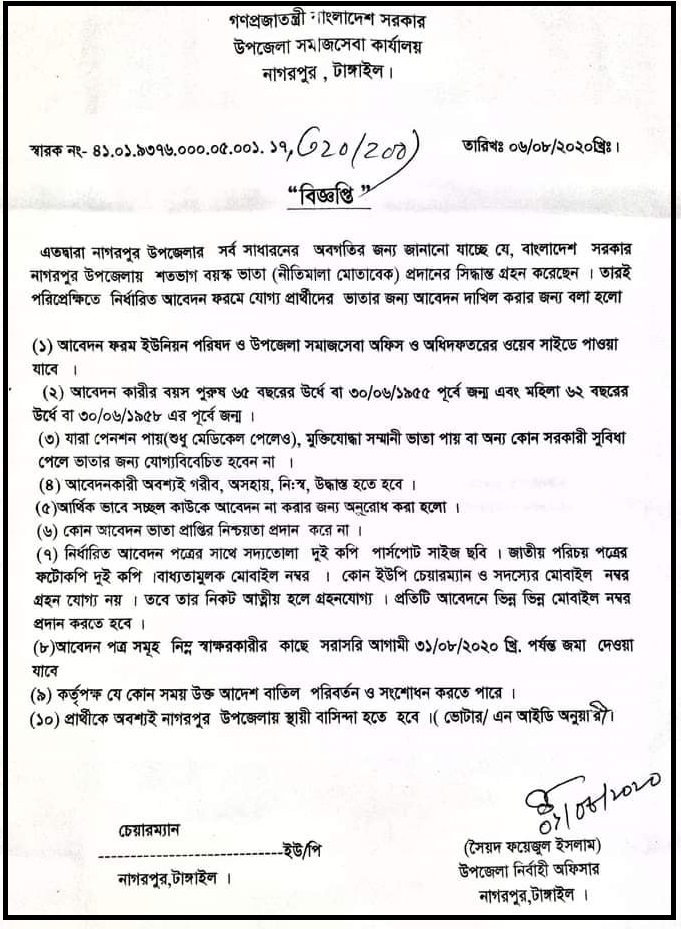 গণপ্রজাতন্ত্রী বাংলাদেশ সরকার
উপজেলা সমাজসেবা কার্যালয়
নাগরপুর , টাঙ্গাইল ।
স্বারক নং- ৪১.০১.৯৩৭৬.০০০.০৫.০০১. ১৭,
তারিখঃ ০৬/০৮/২০২০খ্রিঃ।
“বিজ্ঞপ্তি”
এতদ্বারা নাগরপুর উপজেলার সর্ব সাধারনের অবগতির জন্য জানানো যাচ্ছে যে, বাংলাদেশ সরকার
নাগরপুর উপজেলায় শতভাগ বয়স্ক ভাতা (নীতিমালা মোতাবেক) প্রদানের সিদ্ধান্ত গ্রহন করেছেন । তারই
পরিপ্রেক্ষিতে নির্ধারিত আবেদন ফরমে যোগ্য প্রার্থীদের ভাতার জন্য আবেদন দাখিল করার জন্য বলা হলো
(১) আবেদন ফরম ইউনিয়ন পরিষদ ও উপজেলা সমাজসেবা অফিস ও অধিদফতরের ওয়েব সাইডে পাওয়া
যাবে ।
(২) আবেদন কারীর বয়স পুরুষ ৬৫ বছরের উর্ধে বা ৩০/০৬/১৯৫৫ পূর্বে জন্ম এবং মহিলা ৬২ বছরের
উর্ধে বা ৩০/০৬/১৯৫৮ এর পূর্বে জন্ম ।
(৩) যারা পেনশন পায়(শুধু মেডিকেল পেলেও), মুক্তিযোদ্ধা সম্মানী ভাতা পায় বা অন্য কোন সরকারী সুবিধা
পেলে ভাতার জন্য যোগ্যবিবেচিত হবেন না ।
(৪) আবেদনকারী অবশ্যই গরীব, অসহায়, নি:স্ব, উদ্ধাস্ত হতে হবে ।
(৫)আর্থিক ভাবে সচ্ছল কাউকে আবেদন না করার জন্য অনুরোধ করা হলো ।
(৬) কোন আবেদন ভাতা প্রাপ্তির নিশ্চয়তা প্রদান করে না ।
(৭) নির্ধারিত আবেদন পত্রের সাথে সদ্যতোলা দুই কপি পার্সপোট সাইজ ছবি । জাতীয় পরিচয় পত্রের
ফটোকপি দুই কপি ।বাধ্যতামুলক মোবাইল নম্বর । কোন ইউপি চেয়ারম্যান ও সদস্যের মোবাইল নম্বর
গ্রহন যোগ্য নয় । তবে তার নিকট আত্নীয় হলে গ্রহনযোগ্য । প্রতিটি আবেদনে ভিন্ন ভিন্ন মোবাইল নম্বর
প্রদান করতে হবে ।
(৮)আবেদন পত্র সমূহ নিম্ন স্বাক্ষরকারীর কাছে সরাসরি আগামী ৩১/০৮/২০২০ খ্রি. পর্যন্ত জমা দেওয়া
যাবে
(৯) কর্তৃপক্ষ যে কোন সময় উক্ত আদেশ বাতিল পরিবর্তন ও সংশোধন করতে পারে ।
(১০) প্রার্থীকে অবশ্যই নাগরপুর উপজেলায় স্থায়ী বাসিন্দা হতে হবে ।( ভোটার/ এন আইডি অনুযারী)।
চেয়ারম্যান
-----------------------------ইউ/পি
নাগরপুর,টাঙ্গাইল ।
(সৈয়দ ফয়েজুল ইসলাম)
উপজেলা নির্বাহী অফিসার
নাগরপুর,টাঙ্গাইল ।